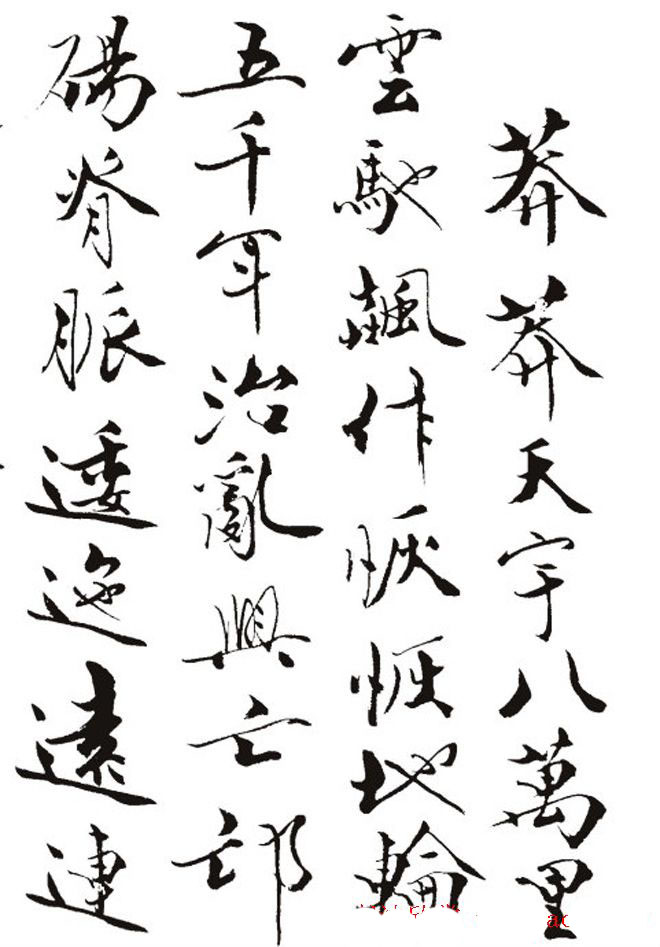 莽莽天宇八萬里
雲馳飆作恢恢地輪
五千年治亂興亡邙
碭脊脈逶迤遠連